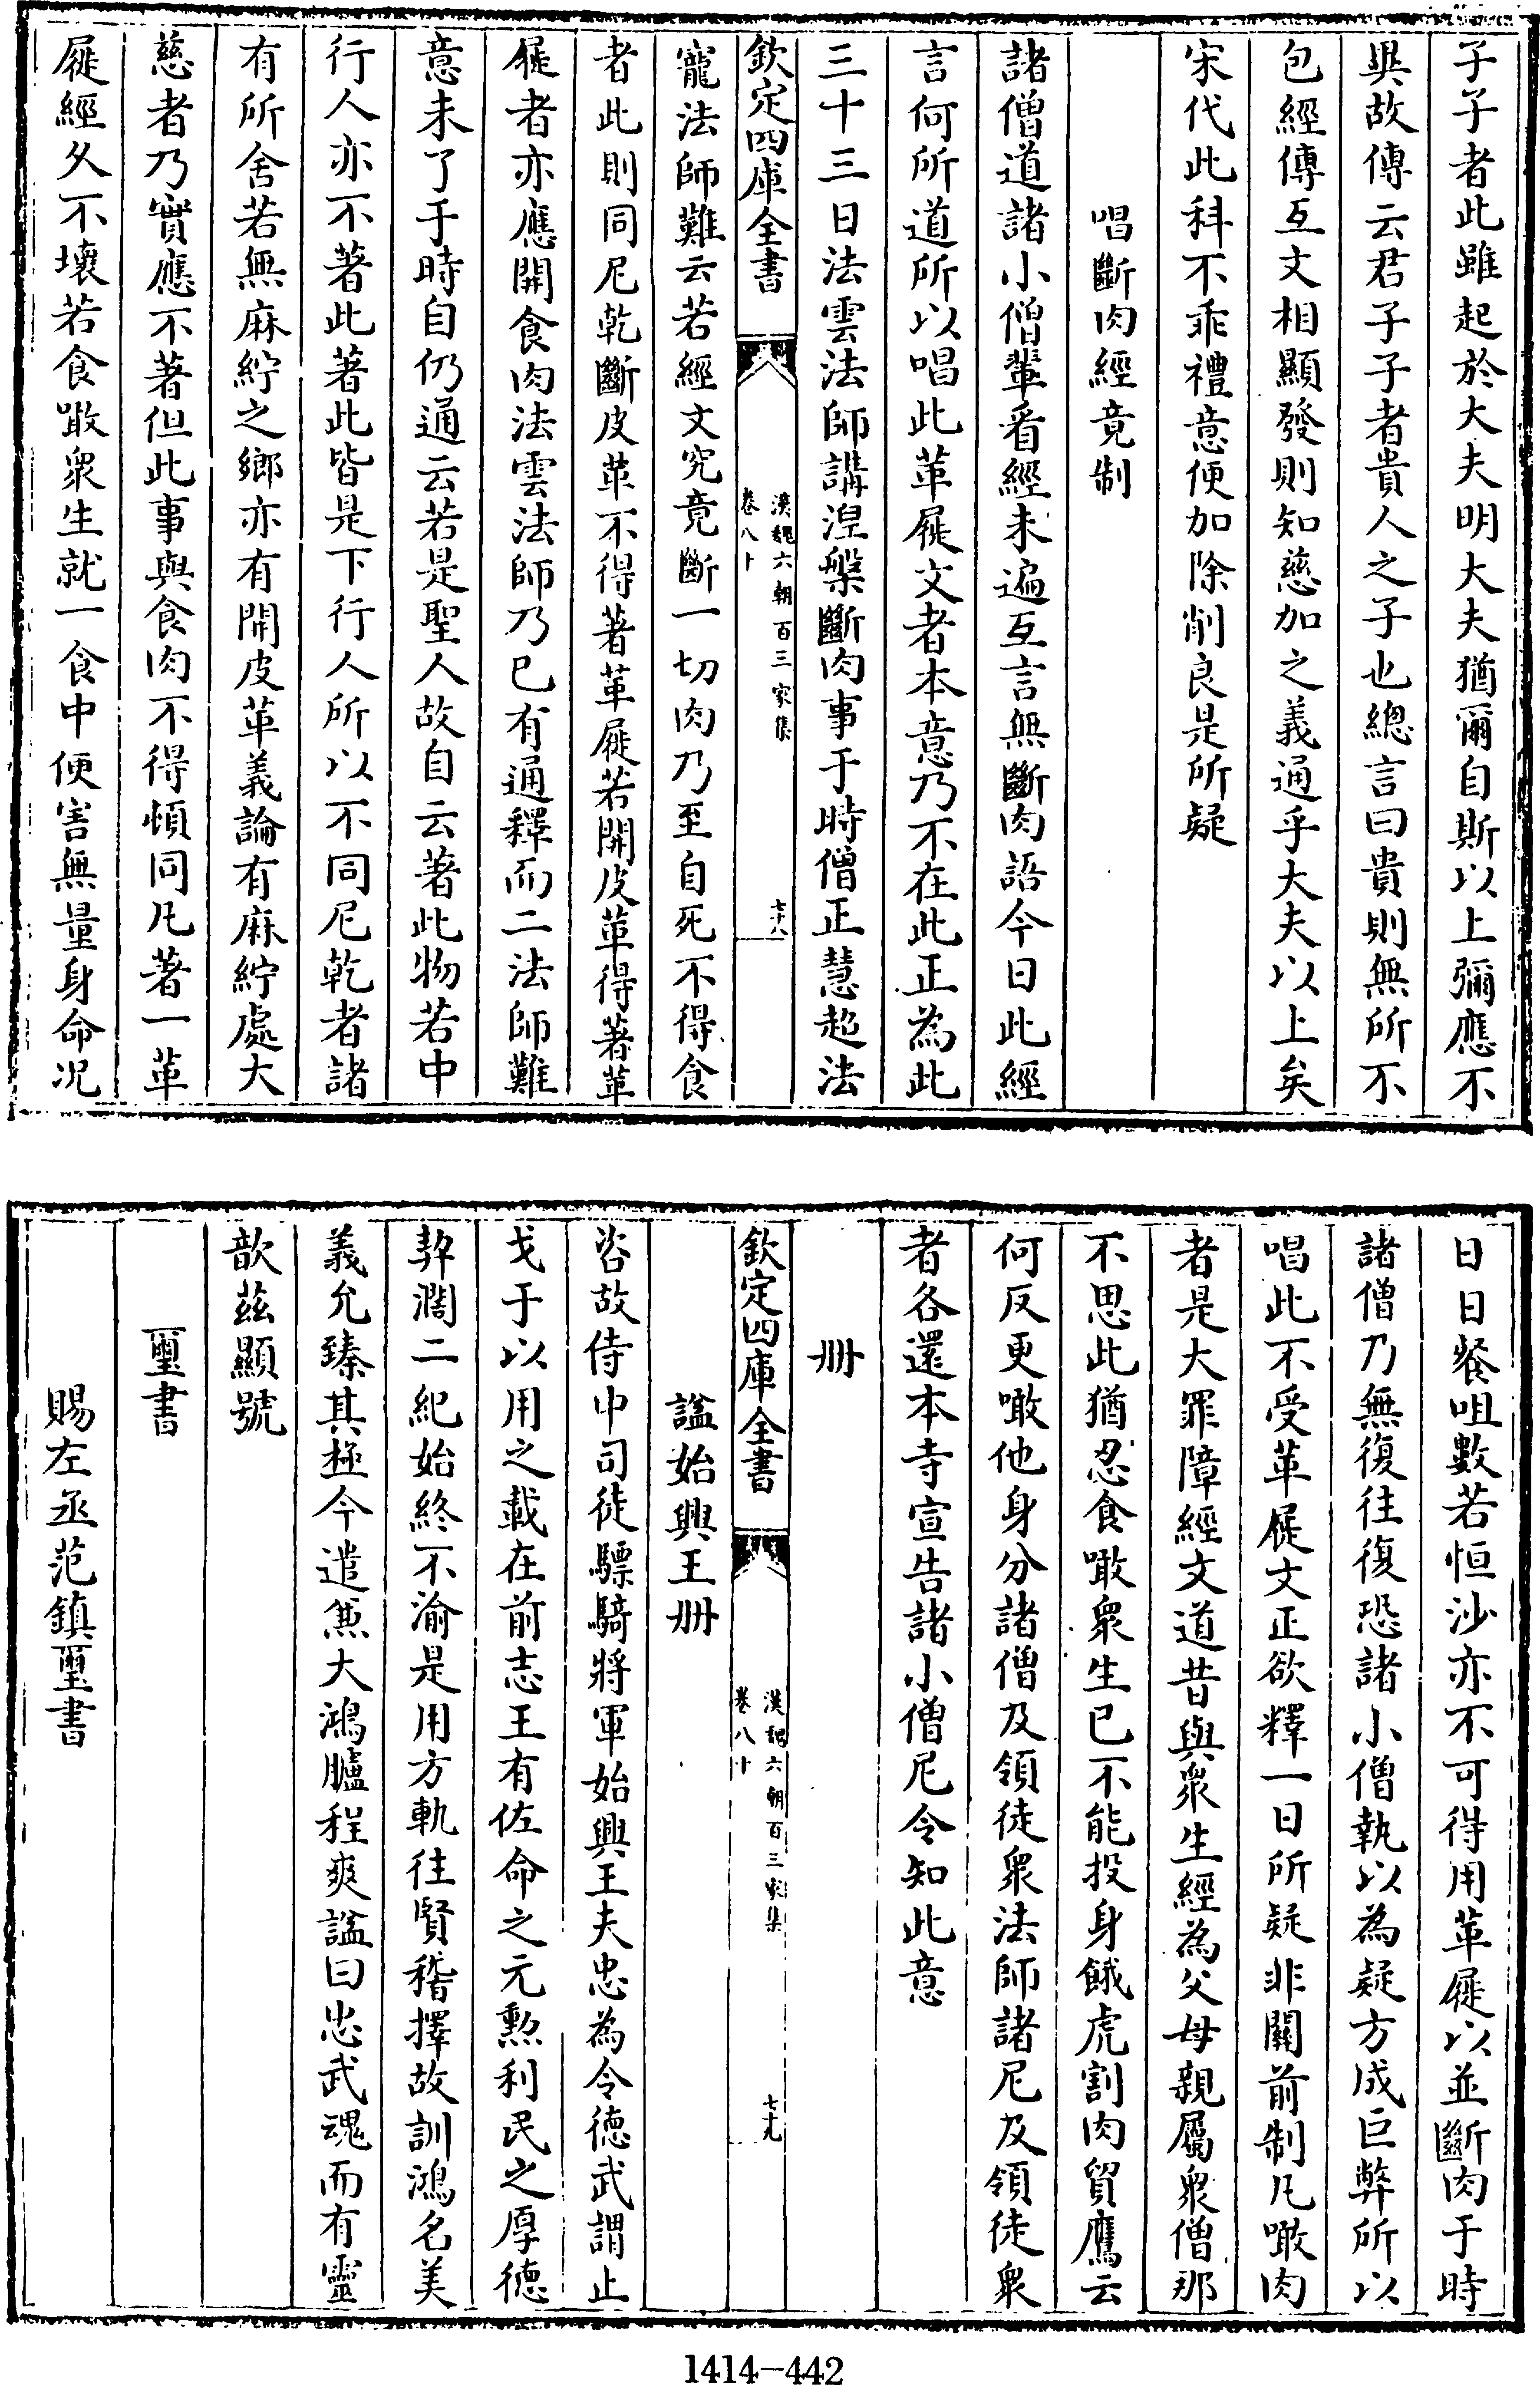 子子者此雖起於大夫明大夫猶爾自斯以上彌應不
異故傳云君子子者貴人之子也總言曰貴則無所不
包經傳互文相顯發則知慈加之義通乎大夫以上矣
宋代此科不乖禮意便加除削良是所疑
唱斷肉經竟制
諸僧道諸小僧輩看經未遍互言無斷肉語今日此經
言何所道所以唱此革屣文者本意乃不在此正為此
三十三日法雲法師講涅槃斷肉事于時僧正慧超法
欽定四庫全書
漢魏六朝百三家集
卷八十
七十八
寵法師難云若經文究竟斷一切肉乃至自死不得食
者此則同尼乾斷皮革不得著革屣若開皮革得著革
屣者亦應開食肉法雲法師乃已有通釋而二法師難
意未了于時自仍通云若是聖人故自云著此物若中
行人亦不著此著此皆是下行人所以不同尼乾者諸
有所舍若無麻紵之鄉亦有開皮革義論有麻紵處大
慈者乃實應不著但此事與食肉不得頓同凡著一革
屣經久不壞若食噉衆生就一食中便害無量身命况
日日餐咀數若恒沙亦不可得用革屣以並斷肉于時
諸僧乃無復往復恐諸小僧執以為疑方成巨弊所以
唱此不受革屣文正欲釋一日所疑非關前制凡噉肉
者是大罪障經文道昔與衆生經為父母親屬衆僧那
不思此猶忍食噉衆生已不能投身餓虎割肉貿鷹云
何反更噉他身分諸僧及領徒衆法師諸尼及領徒衆
者各還本寺宣告諸小僧尼令知此意
冊
欽定四庫全書
漢魏六朝百三家集
卷八十
七十九
諡始興王冊
咨故侍中司徒驃騎將軍始興王夫忠為令德武謂止
戈于以用之載在前志王有佐命之元勲利民之厚德
契濶二紀始終不渝是用方軌往賢稽擇故訓鴻名美
義允臻其極今遣兼大鴻臚程爽諡曰忠武魂而有靈
歆茲顯號
璽書
賜左丞范鎮璽書
1414-442